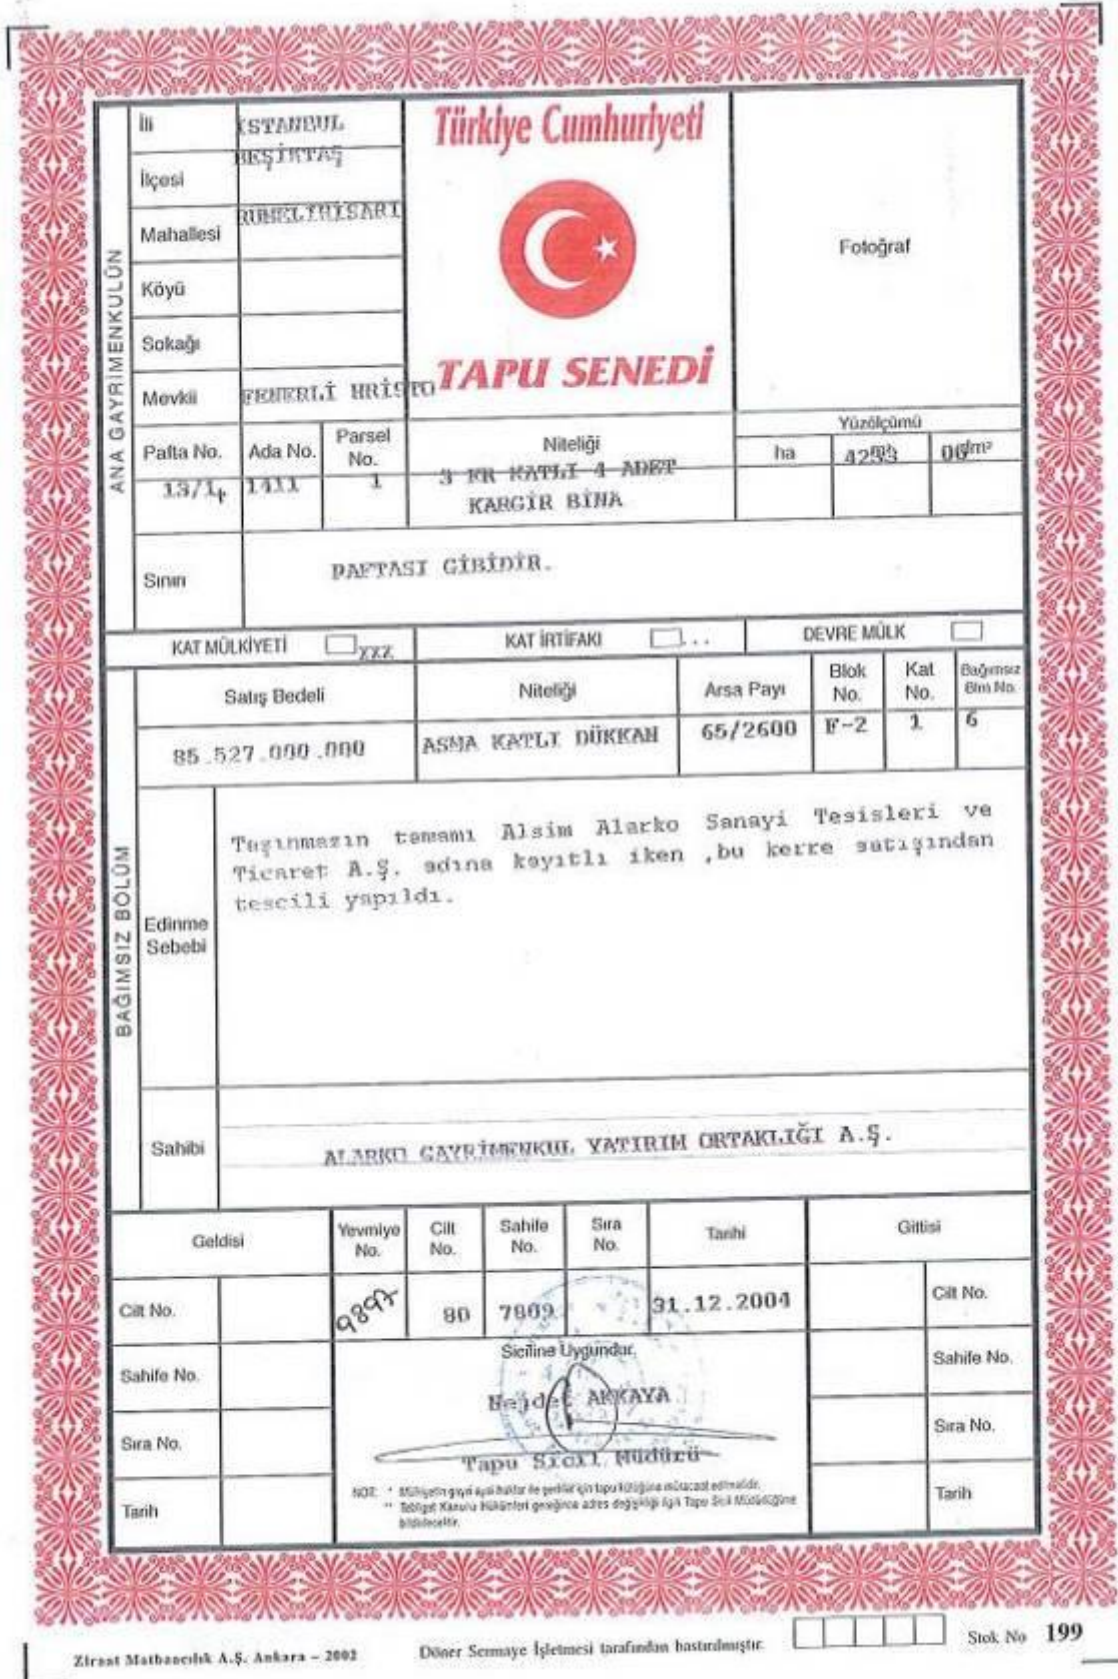 Türkiye Cumhuriyeti
TAPU SENEDİ
Fotoğraf
ANA GAYRİMENKULÜN
İli İSTANBUL
İlçesi BEŞİKTAŞ
Mahallesi RUMELİHİSARI
Köyü
Sokağı
Mevkii FENERLİ HRİSTO
Pafta No. Ada No. Parsel No. Niteliği Yüzölçümü ha m² dm²
13/14 1411 1 3 ER KATLI 4 ADET 4253 00
KARGİR BİNA
Sınırı PAFTASI GİBİDİR.
KAT MÜLKİYETİ xxx KAT İRTİFAKI ... DEVRE MÜLK
BAĞIMSIZ BÖLÜM
Satış Bedeli Niteliği Arsa Payı Blok No. Kat No. Bağımsız Blm No.
85.527.000.000 ASMA KATLI DÜKKAN 65/2600 F-2 1 6
Edinme Sebebi
Taşınmazın tamamı Alsim Alarko Sanayi Tesisleri ve
Ticaret A.Ş. adına kayıtlı iken ,bu kerre satışından
tescili yapıldı.
Sahibi ALARKO GAYRİMENKUL YATIRIM ORTAKLIĞI A.Ş.
Geldisi Yevmiye No. Cilt No. Sahife No. Sıra No. Tarihi Gittisi
Cilt No. 9897 80 7809 31.12.2004 Cilt No.
Siciline Uygundur.
Sahife No. Sahife No.
Nejdet AKKAYA
Sıra No. Sıra No.
Tapu Sicil Müdürü
Tarih Tarih
NOT: * Mülkiyetin gayri ayni haklar ile şerhler için tapu kütüğüne müracaat edilmelidir.
** Tebligat Kanunu Hükümleri gereğince adres değişikliği ilgili Tapu Sicil Müdürlüğüne
bildirilecektir.
Ziraat Matbaacılık A.Ş. Ankara – 2002
Döner Sermaye İşletmesi tarafından bastırılmıştır.
Stok No 199